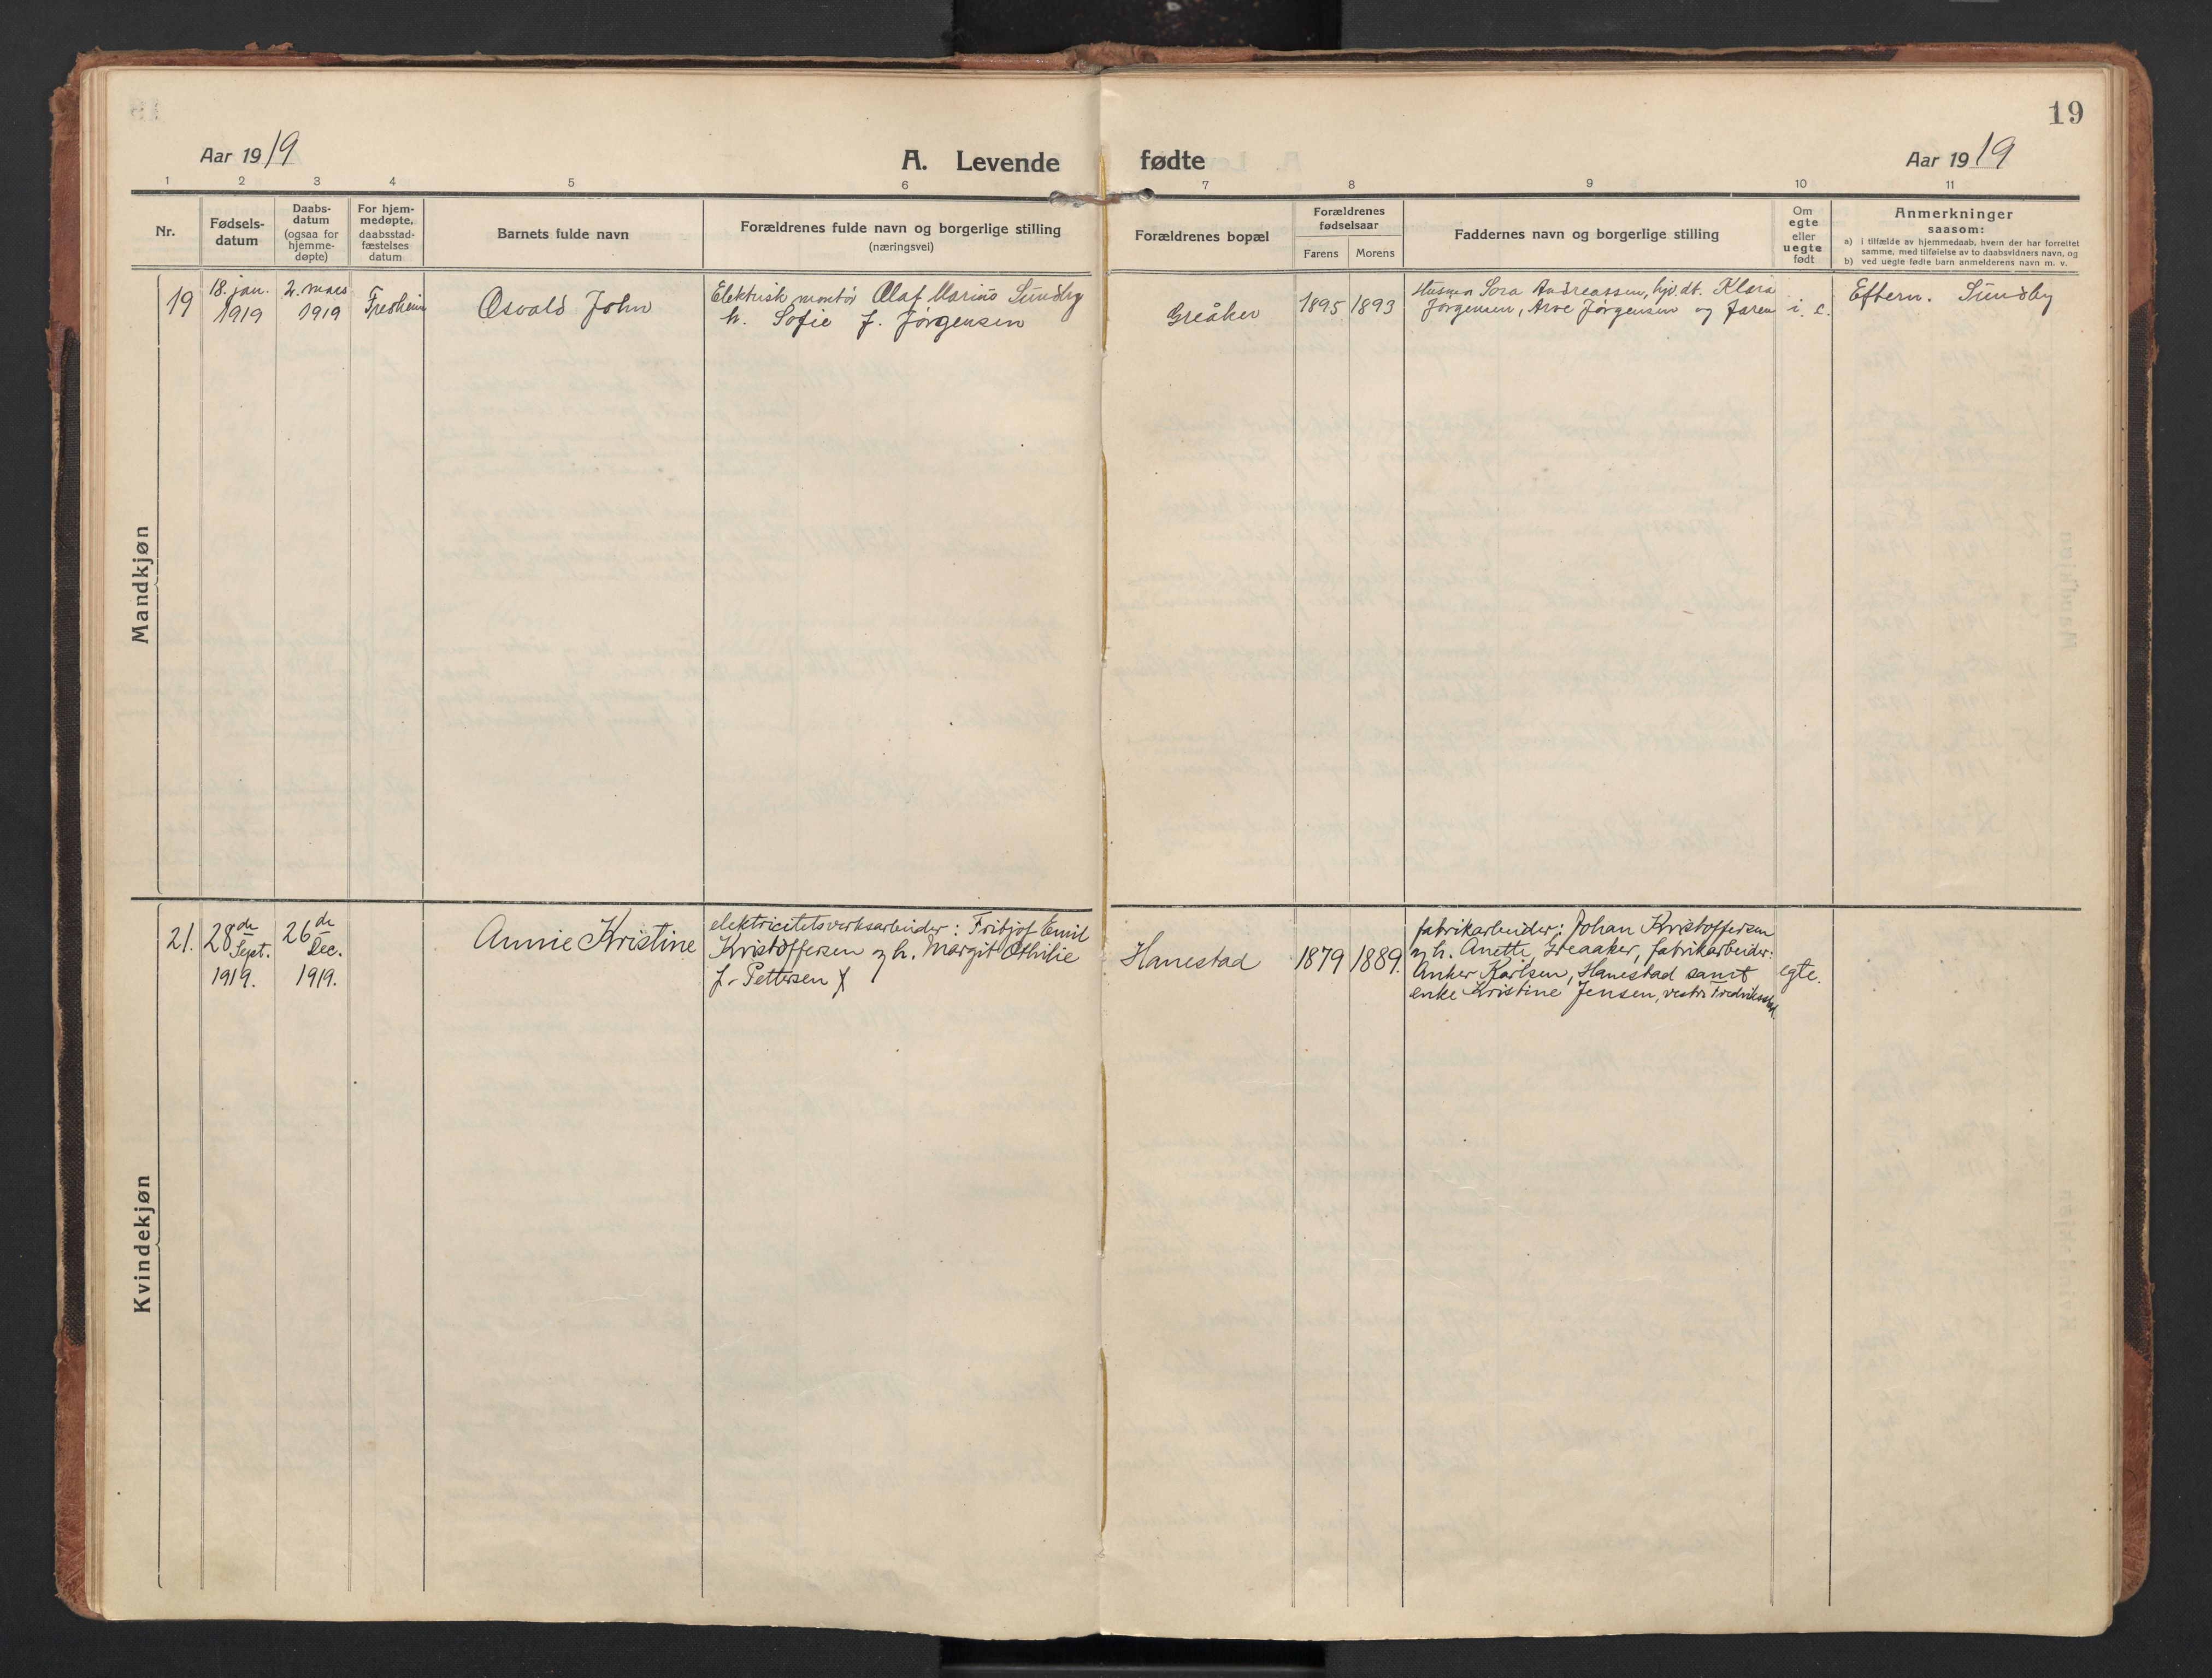 19
Aar 1919
A. Levende fødte
Aar 1919
1 2 3 4 5 6 7 8 9 10 11
Nr.
Fødsels-
datum
Daabs-
datum
(ogsaa for
hjemme-
døpte)
For hjem-
medøpte,
daabsstad-
fæstelses
datum
Barnets fulde navn
Forældrenes fulde navn og borgerlige stilling
(næringsvei)
Forældrenes bopæl
Forældrenes
fødselsaar
Farens Morens
Faddernes navn og borgerlige stilling
Om
egte
eller
uegte
født
Anmerkninger
saasom:
a) i tilfælde av hjemmedaab, hvem der har forrettet
samme, med tilføielse av to daabsvidners navn, og
b) ved uegte fødte barn anmelderens navn m. v.
Mandkjøn
19
18. jan.
1919
2. mars
1919
Fredheim
Osvald John
Elektrisk montør Olaf Marius Sundby
h. Sofie f. Jørgensen
Greåker
1895 1893
Andreassen, hjv. dt. Klara
Jørgensen, Arve Jørgensen og faren
i. e.
Eftern. Sundby
Kvindekjøn
21.
28de
Sept.
1919.
26de
Dec.
1919.
Annie Kristine
elektricitetsverksarbeider: Fritjof Emil
Kristoffersen og h. Margit Othilie
f. Pettersen
Hanestad
1879 1889.
fabrikarbeider: Johan Kristoffersen
og h. Anette, Greaaker, fabrikarbeider:
Anker Karlsen, Hanestad samt
enke Kristine Jensen, vestre Fredrikstad.
egte.